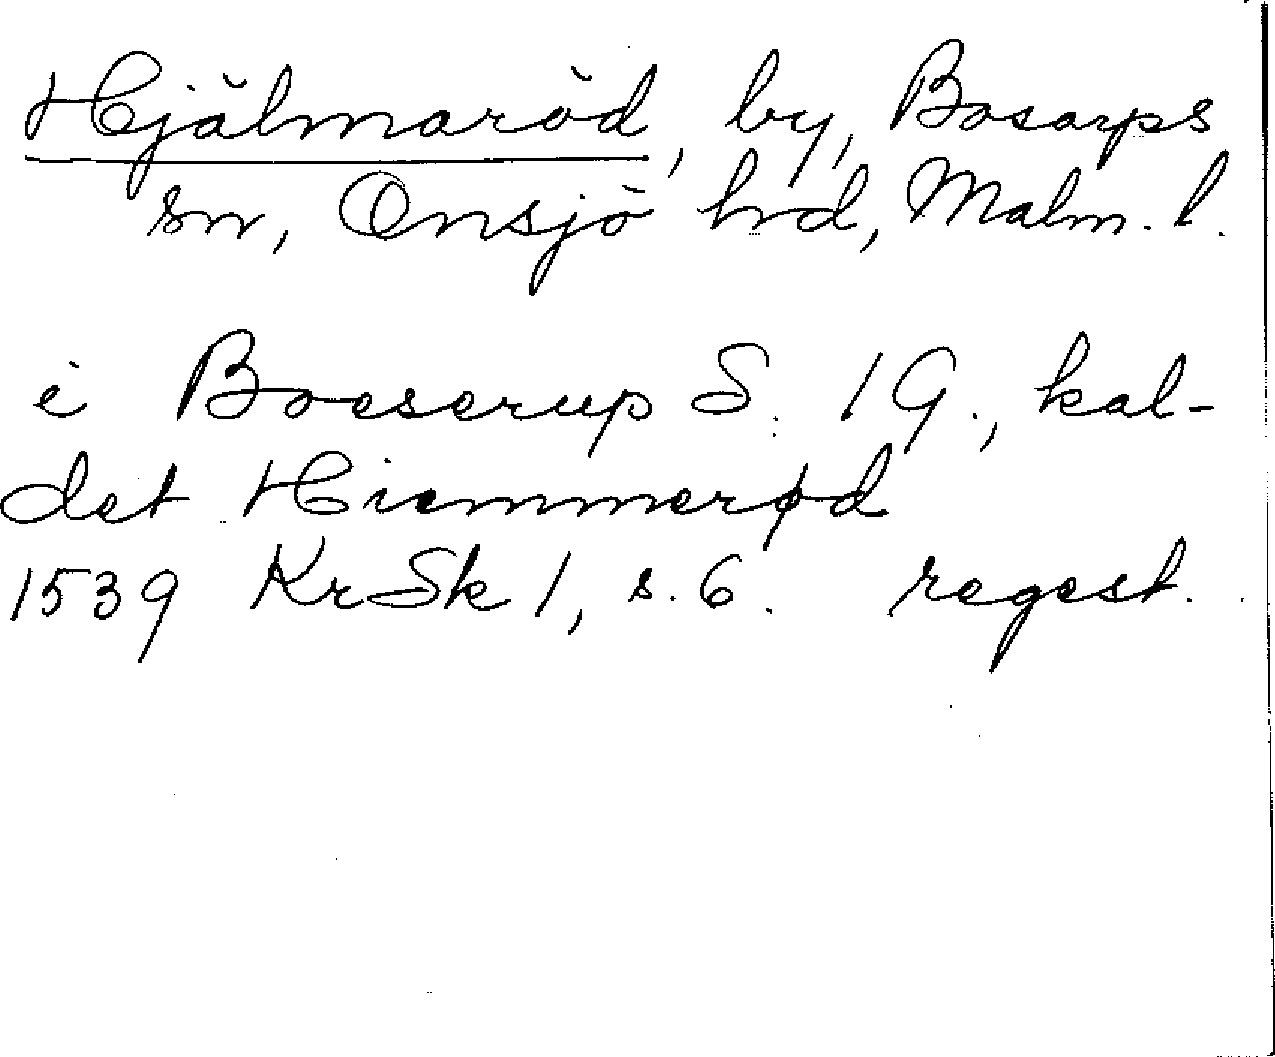 Hjälmaröd, by, Bosarps
sn, Onsjö hrd, Malm. l.
i Boeserup S. 1 G., kal-
det Hiemmerød
1539 KrSk 1, s. 6. regest.